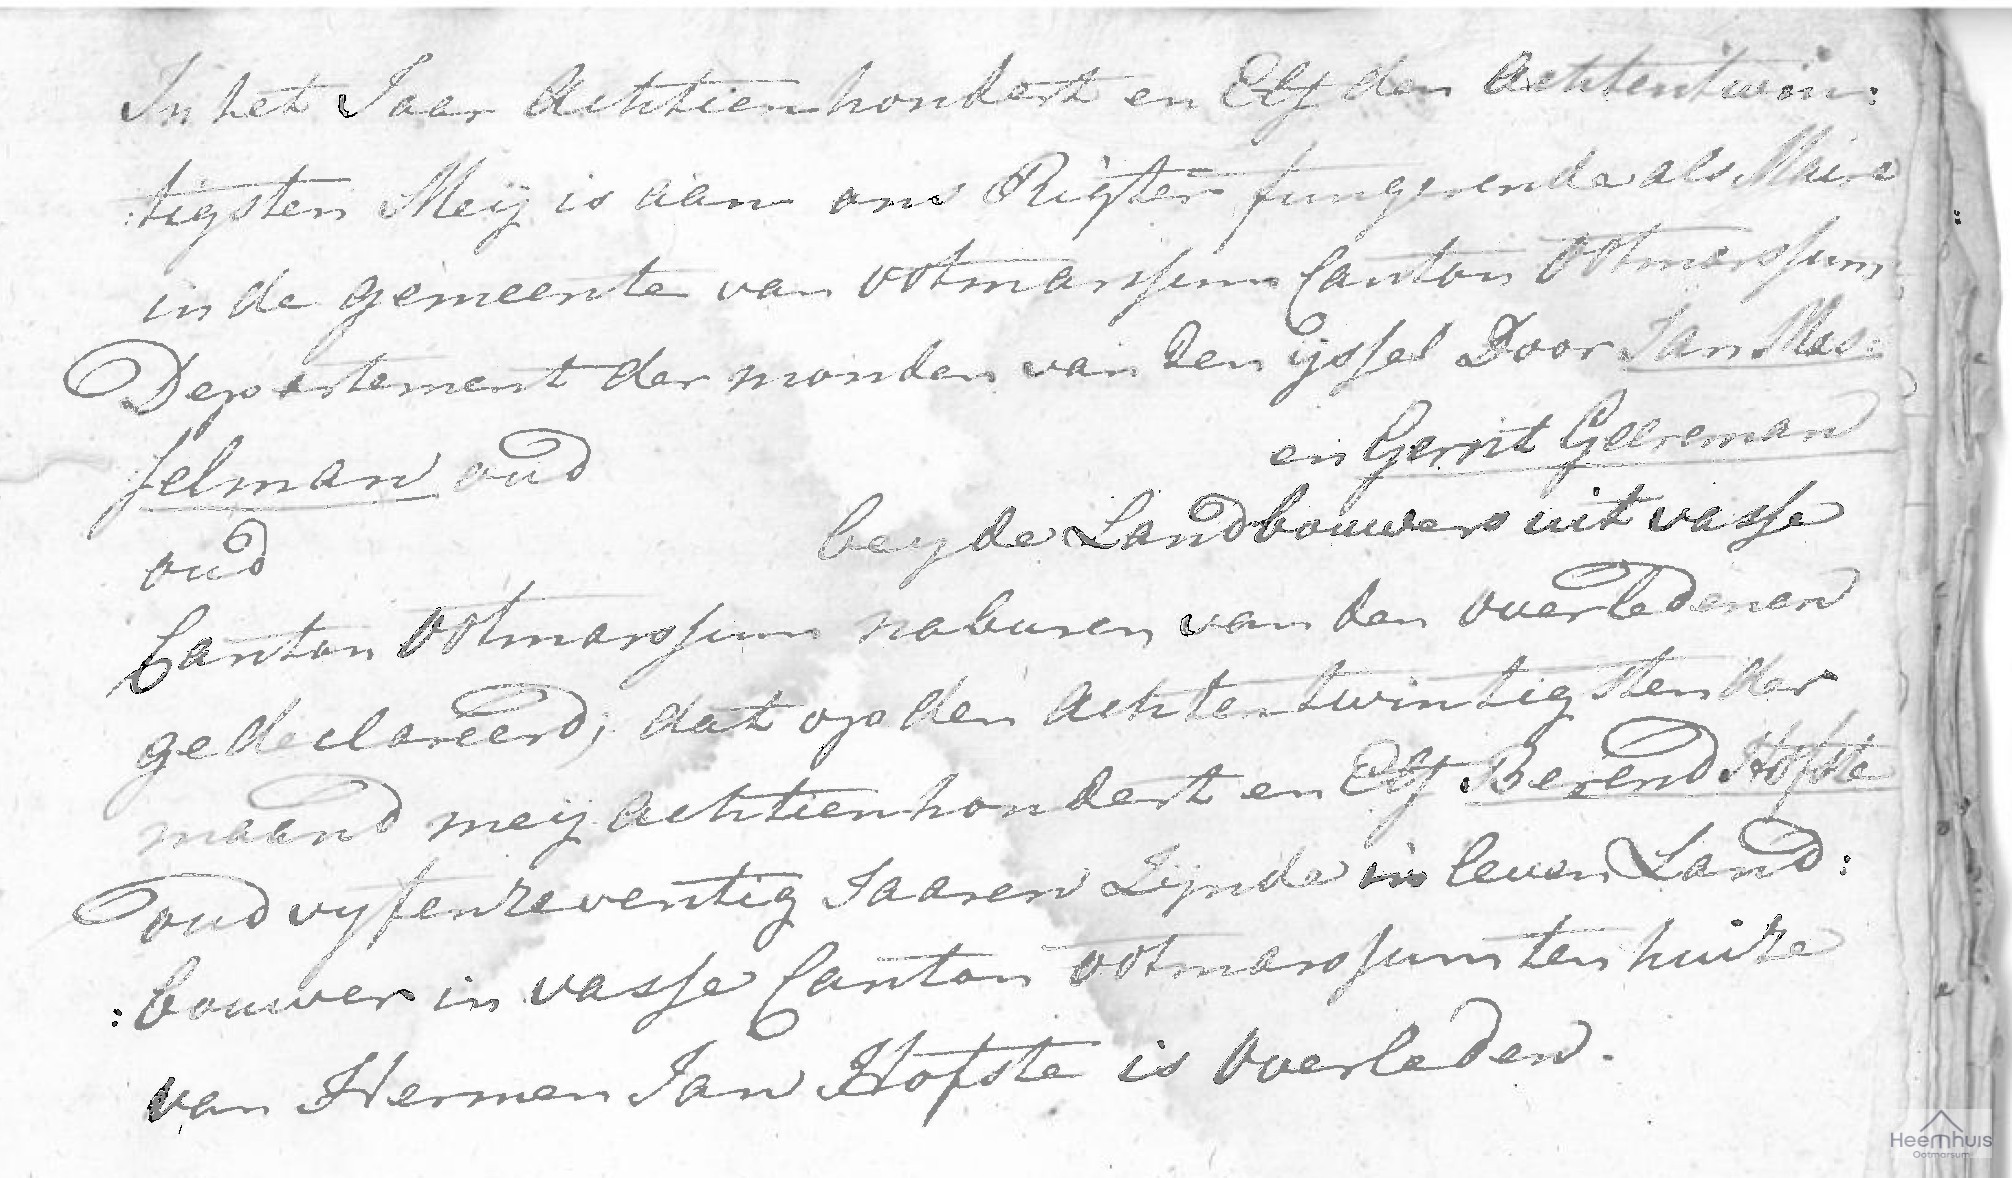 In het Jaar Achttienhondert en Elf den Achtentwin:
:tigsten Meij is aan ons Rigter fungerende als Maire
in de gemeente van Ootmarssum Canton Ootmarssum
Departement der monden van den Yssel Door Jan Mes:
selman oud en Gerrit Geereman
oud beyde Landbouwers uit vasse
Canton Ootmarssum naburen van den overledenen
gedeclareerd, dat op den Achtentwintigsten der
maand meij Achttienhondert en Elf Berend Hofste
oud vyfenzeventig Jaaren Zijnde in leven Land:
:bouwer in vasse Canton Ootmarssum ten huize
van Hermen Jan Hofste is overleden.
Heemhuis
Ootmarsum